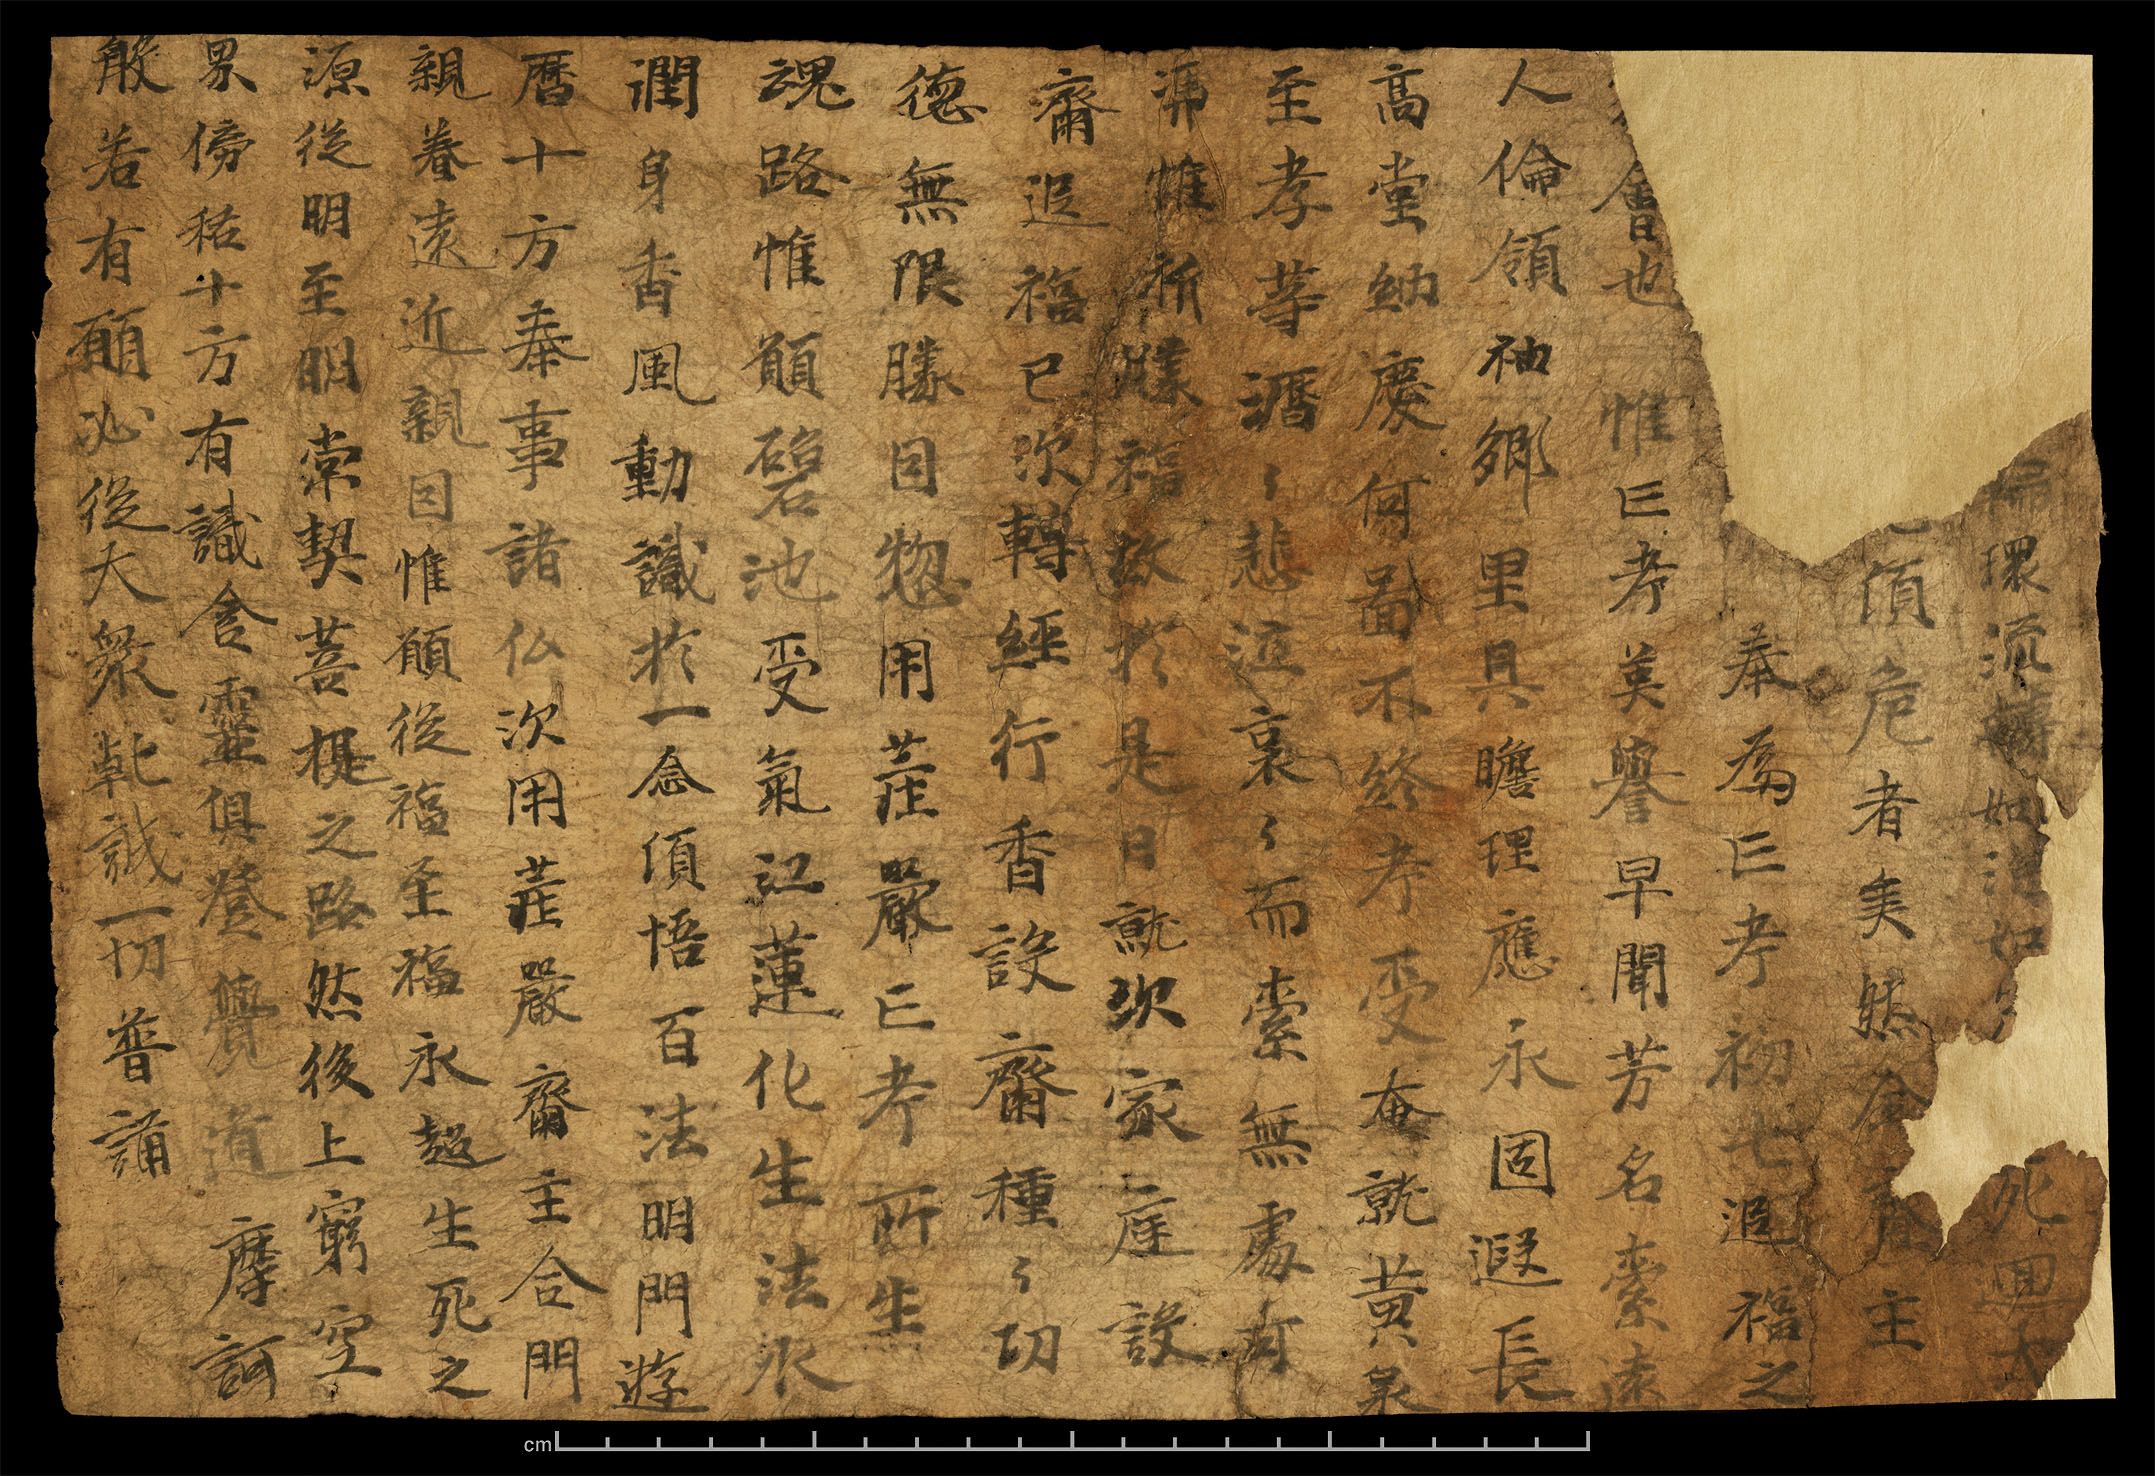 環流轉如泡如 死𢌞
須危者矣然今齋主
奉為亡考初七追福之
會也 惟亡考英譽早聞芳名素遠
人倫領袖鄉里具瞻理應永固遐長
高堂納慶何啚不終考受奄就黃泉
至孝等㴞〻悲泣哀〻而素無處可
憑惟祈勝福故於是日就次家庭設
齋追福已次轉經行香設齋種〻功
德無限勝因惣用莊嚴亡考所生
魂路惟願碧池受氣紅蓮化生法水
潤身香風動識於一念須悟百法明門遊
曆十方奉事諸仏次用莊嚴齋主合門
親眷遠近親因惟願從福至福永超生死之
源從明至明常契菩提之路然後上窮空
界傍括十方有識含靈俱登覺道摩訶
般若有願必從大衆乹誠一切普誦